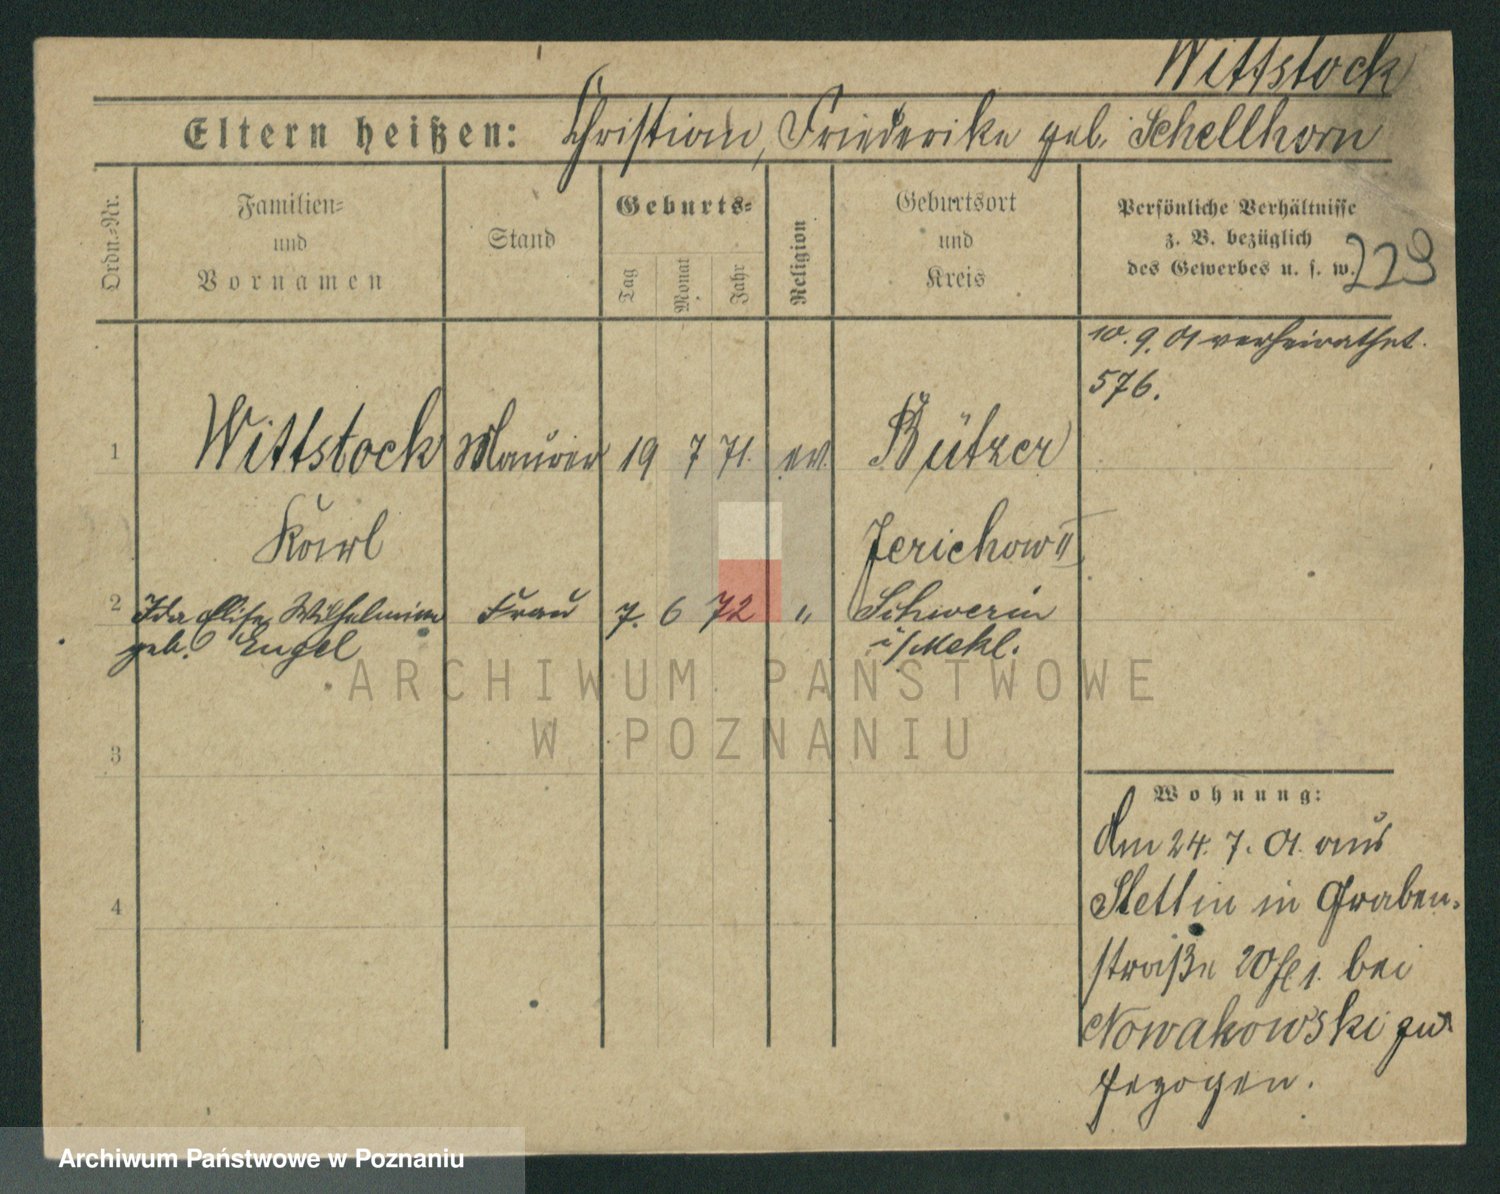 Wittstock
Eltern heißen: Christian, Friederike geb. Schellhorn
Ordn.-Nr.
Familien-
und
Vornamen
Stand
Geburts-
Tag
Monat
Jahr
Religion
Geburtsort
und
Kreis
Persönliche Verhältnisse
z. B. bezüglich
des Gewerbes u. s. w.
229
10. 9. 01 verheirathet.
576.
1 Wittstock Maurer 19 7 71. ev. Bützer
Karl Jerichow II
2 Ida Elise Wilhelmine Frau 7. 6 72 " Schwerin
geb. Engel i/Mekl.
3
4
Wohnung:
Am 24. 7. 01. aus
Stettin in Graben-
straße 20 bei
Nowakowski zu
gezogen.
ARCHIWUM PAŃSTWOWE
W POZNANIU
Archiwum Państwowe w Poznaniu